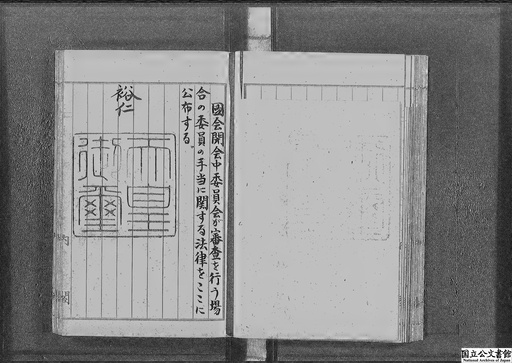 國会開会中委員会が審査を行う場
合の委員の手当に関する法律をここに
公布する。
裕仁
天皇
御璽
内閣
国立公文書館
National Archives of Japan